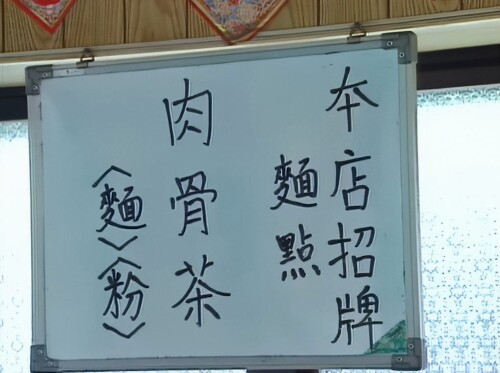 本店招牌
麵點
肉骨茶
〈麵〉〈粉〉